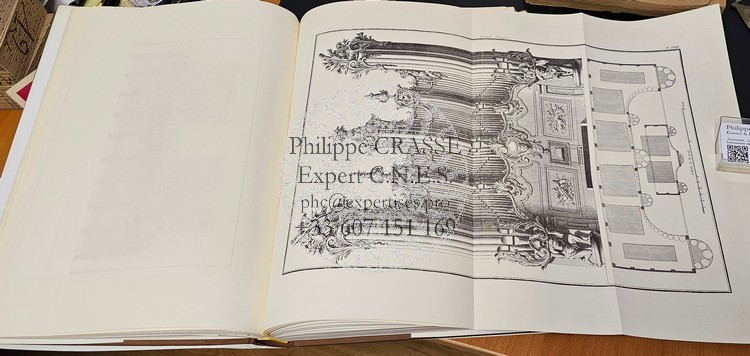 Philippe CRASSE
Expert C.N.E.S.
phc@expertises.pro
+33 607 151 169
Philippe